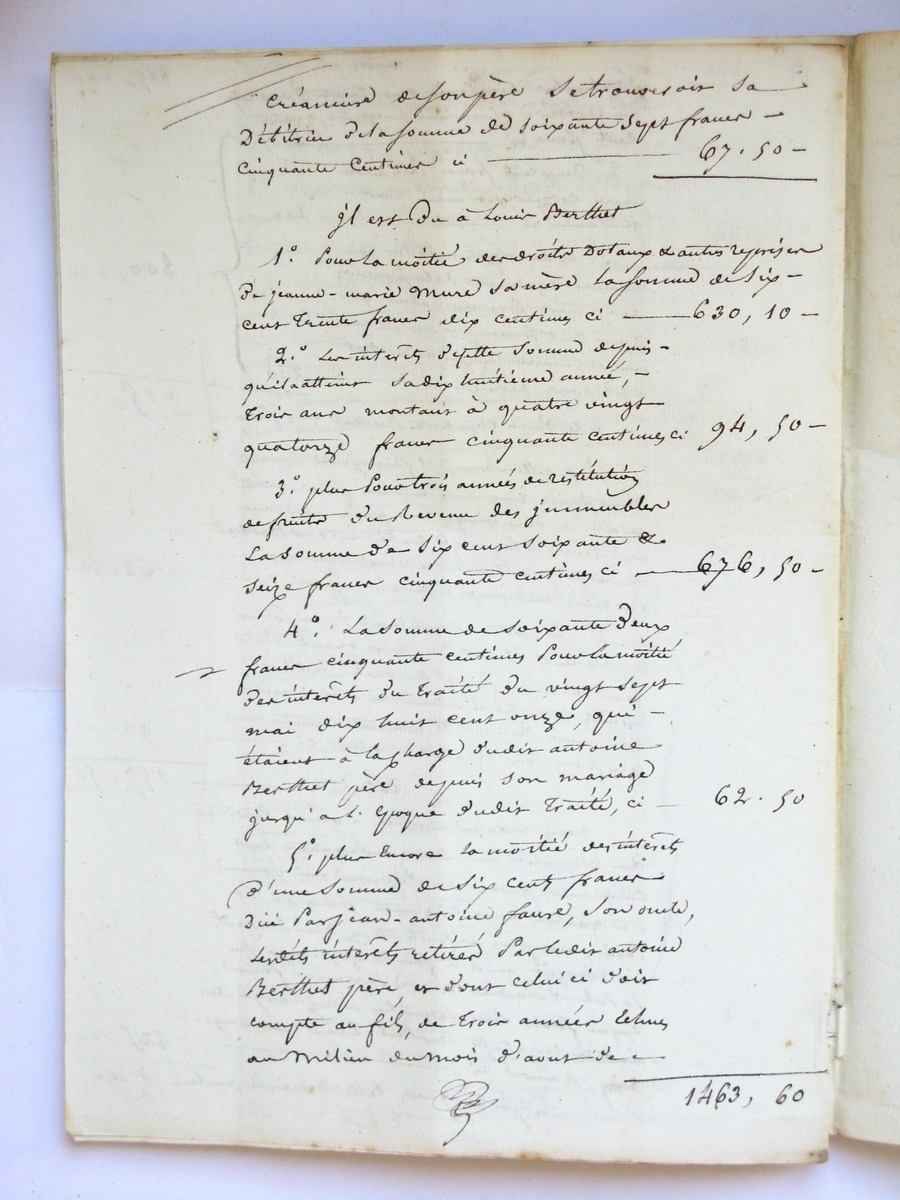 créancière de son père se trouveroit sa
Débitrice de la somme de soixante sept francs -
cinquante centimes ci ——— 67. 50 -
jl est du à Louis Berthet
1.° Pour la moitié des droits Dotaux & autres reprises
de jeanne-marie Mure sa mère la somme de Six-
cent Trente francs dix centimes ci —— 630, 10 -
2.° Les interêts d'icelle somme depuis -
qu'il a atteint sa dix huitieme année, -
Trois ans montant à quatre vingt
quatorze francs cinquante centimes ci 94, 50 -
3.° plus Pour trois années de restitution
de fruits du Revenu des jmmeubles
La somme de Six cent soixante &
seize francs cinquante centimes ci —— 676, 50 -
4.° La somme de soixante deux
francs cinquante centimes Pour la moitié
des interêts du Traité du vingt sept
mai dix huit cent onze, qui -
étaient à la charge dudit antoine
Berthet père depuis son mariage
jusqu'a l'Epoque dudit Traité, ci - 62. 50
5.° plus Encore la moitié des interêts
d'une somme de six cent francs
Düe Par jean-antoine faure, son oncle,
Lesdits interêts retirés Par ledit antoine
Berthet père, et dont celui ci doit
compte au fils, de Trois années Echues
au Milieu du mois d'aout de -
1463, 60